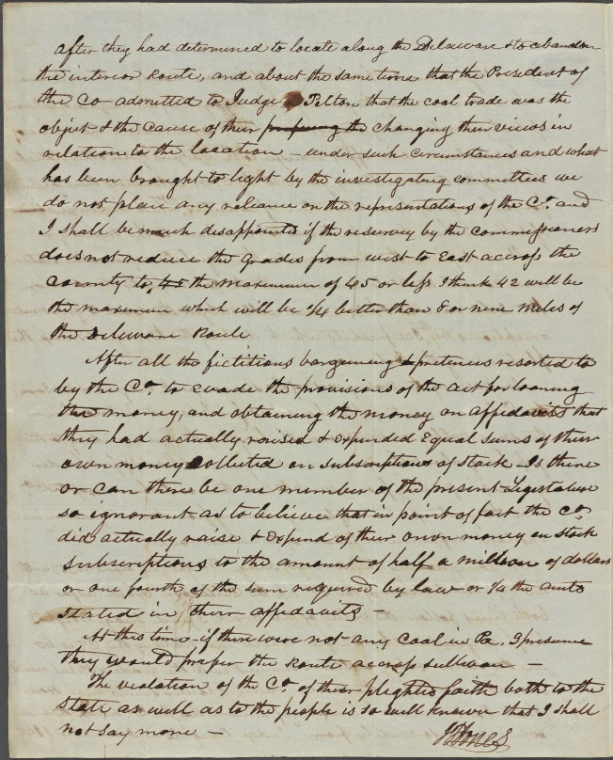 after they had determined to locate along the Delaware & to abandon
the interior Route, and about the same time that the President of
the Co admitted to Judge Pelton that the coal trade was the
object & the cause of their changing their views in
relation to the location – under such circumstances and what
has been brought to light by the investigating committees we
do not place any reliance on the representations of the Co. and
I shall be much disappointed if the resurvey by the commissioners
does not reduce the grades from west to East across the
county to the maximum of 45 or less I think 42 will be
the maximum which will be 1/4 better than 8 or nine miles of
the Delaware Route
After all the fictitious bargaining & pretences resorted to
by the Co. to evade the provisions of the act for loaning
the money, and obtaining the money on affidavits that
they had actually raised & expended Equal sums of their
own money collected on subscriptions of stock. Is there
or can there be one member of the present Legislature
so ignorant as to believe that in point of fact the Co.
did actually raise & expend of their own money on stock
subscriptions to the amount of half a million of dollars
or one fourth of the sum required by law or 1/4 the amt
stated in their affidavits –
At this time – if there were not any Coal in Pa. I presume
they would prefer the Route across Sullivan –
The violation of the Co. of their plighted faith both to the
State as well as to the people is so well known that I shall
not say more –
Jones